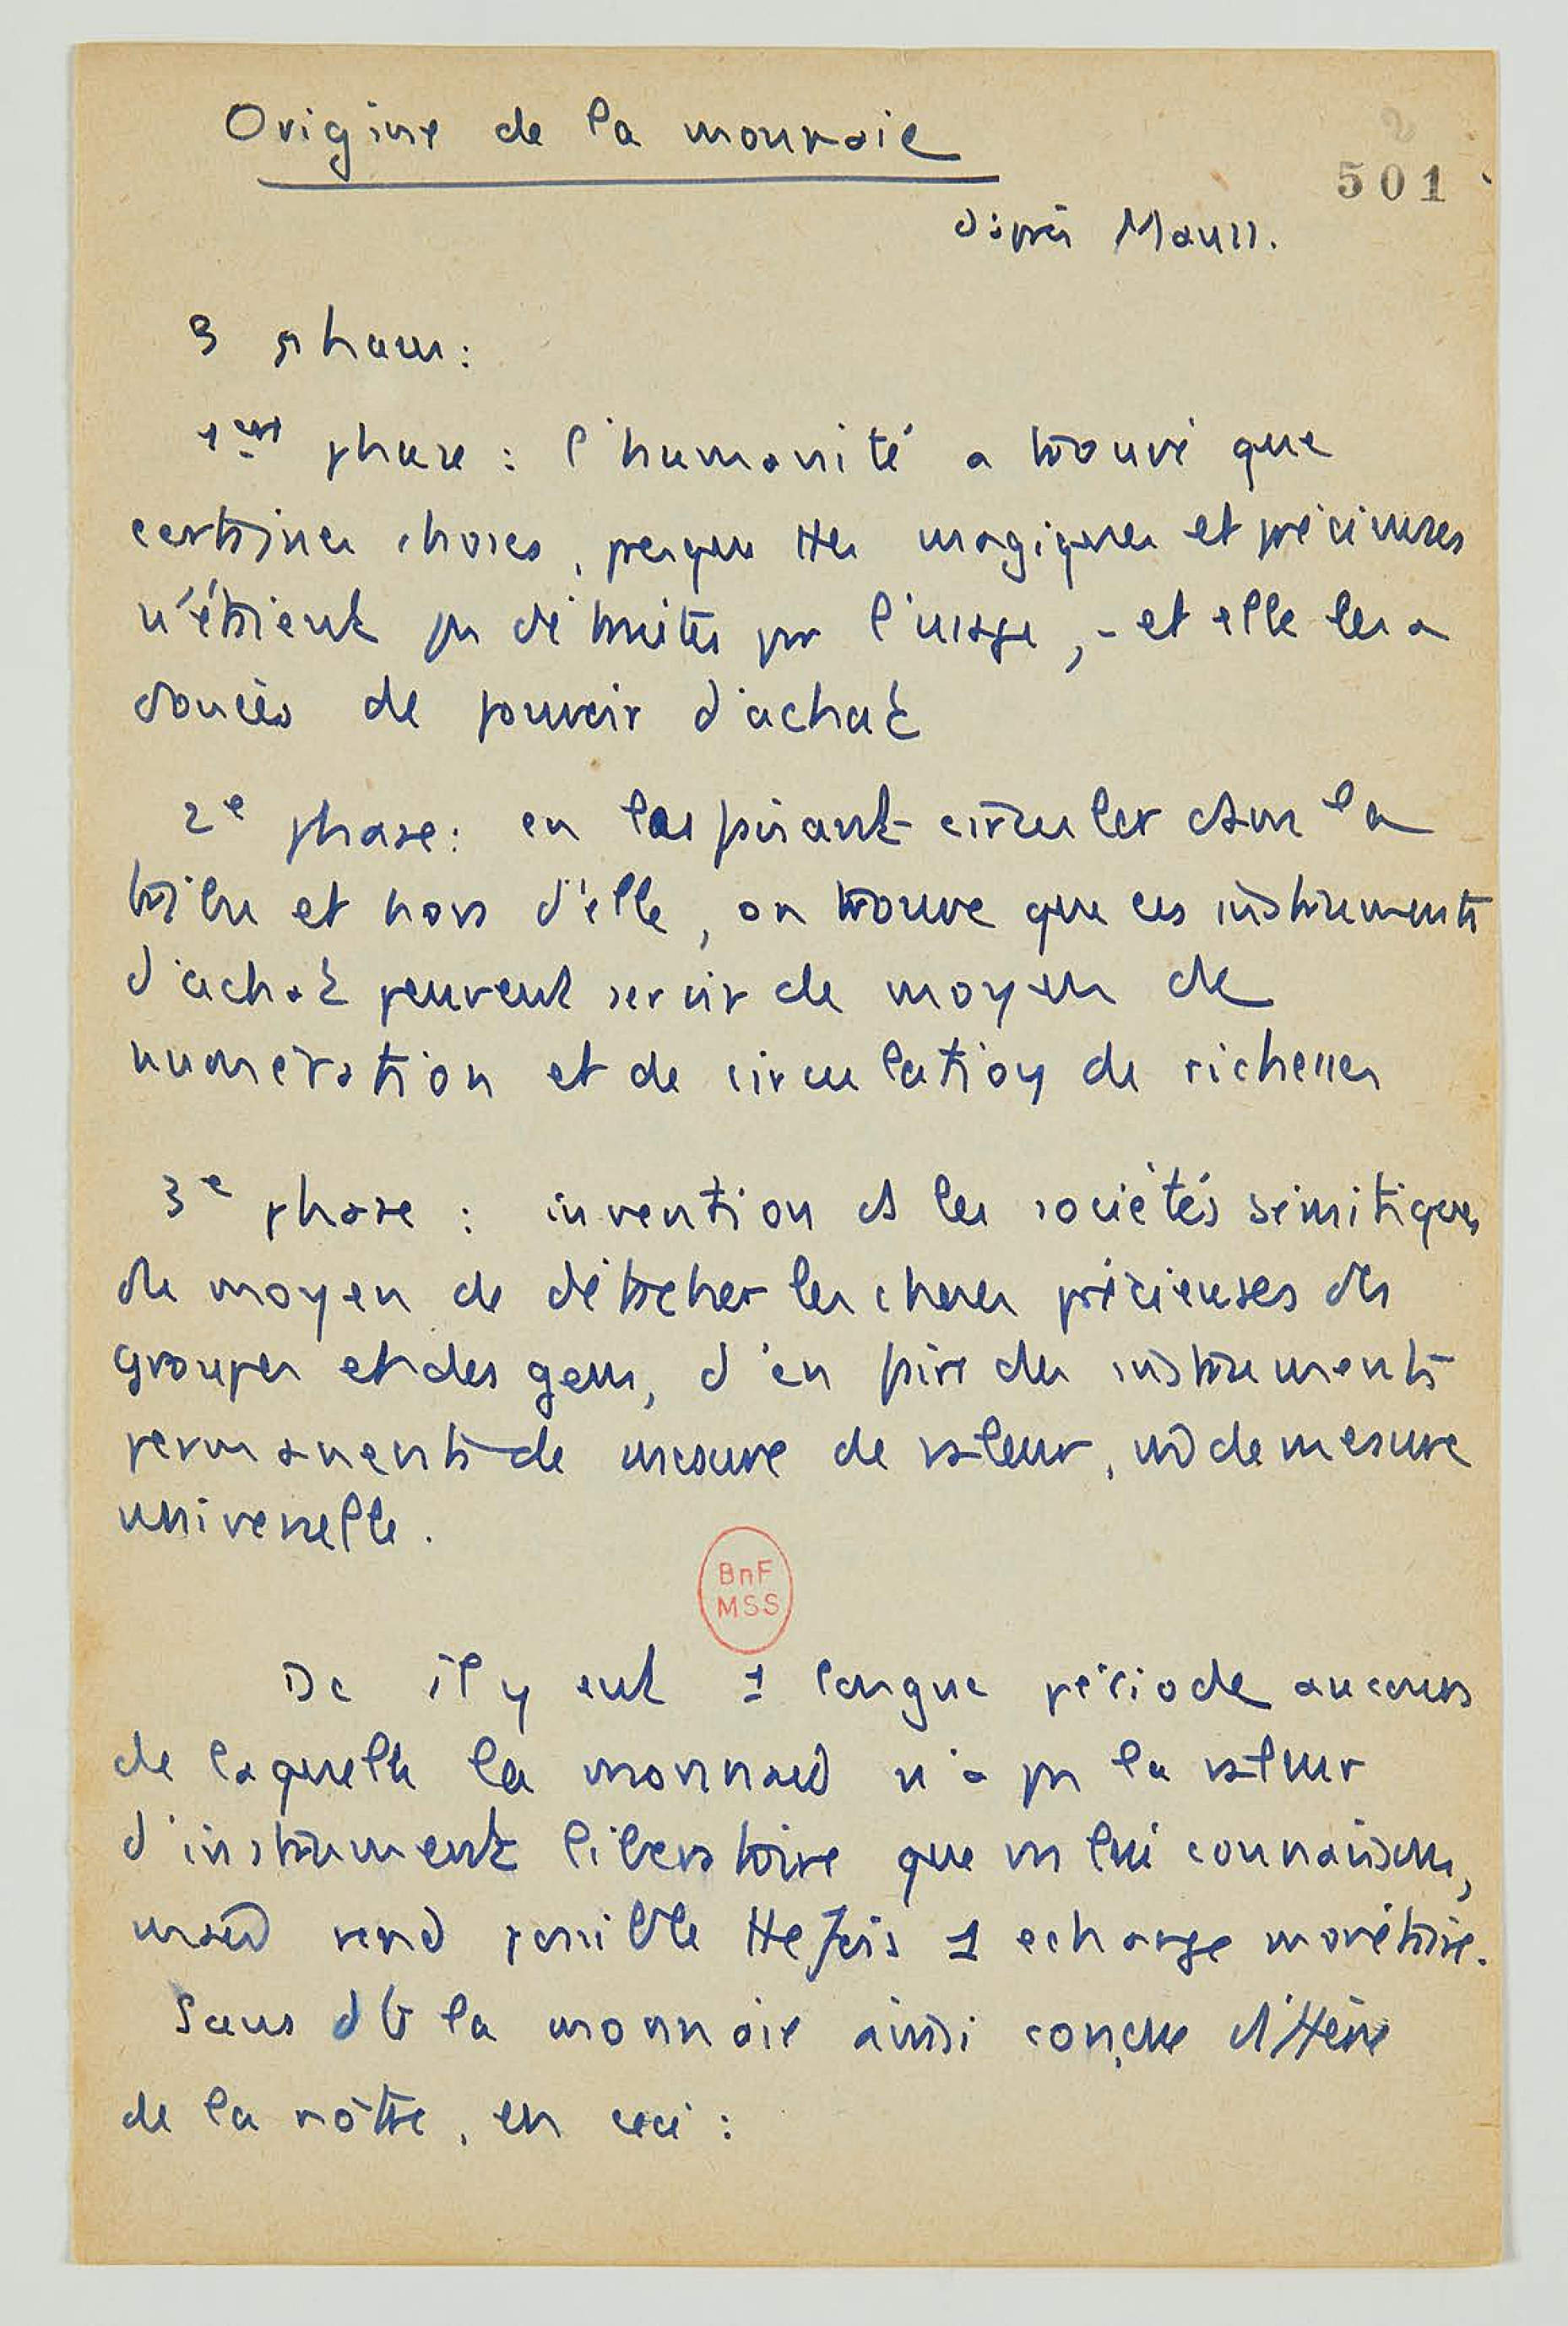 Origine de la monnaie
501
d'après Mauss.
3 phases :
1ère phase : l'humanité a trouvé que
certaines choses, presque ttes magiques et précieuses
n'étaient pas détruites par l'usage, - et elle les a
douées de pouvoir d'achat
2e phase : en les faisant circuler dans la
tribu et hors d'elle, on trouve que ces instruments
d'achat peuvent servir de moyen de
numération et de circulation de richesses
3e phase : invention ds les sociétés sémitiques
du moyen de détacher les choses précieuses des
groupes et des gens, d'en faire des instruments
permanents de mesure de valeur, de mesure
universelle.
BnF
MSS
Dc il y eut 1 longue période au cours
de laquelle la monnaie n'a pas la valeur
d'instrument libératoire que ns lui connaissons,
mais rend possible ttefois 1 échange monétaire.
Sans dte la monnaie ainsi conçue diffère
de la nôtre, en ceci :